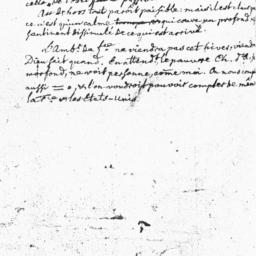 Au dehors tout paroit paisible: mais il est clair que
ce n'est qu'un calme qui couve un profond
sentiment dissimulé de ce qui est arrivé.
L'Amb. de f.ce ne viendra pas cet hiver, viendra
Dieu sait quand. En attend.t le pauvre Ch. d'A. se
morfond, ne voit personne, come moi. On nous
aussi = 0, et l'on voudroit pouvoir compter de même
la F.ce et les Etats-Unis.